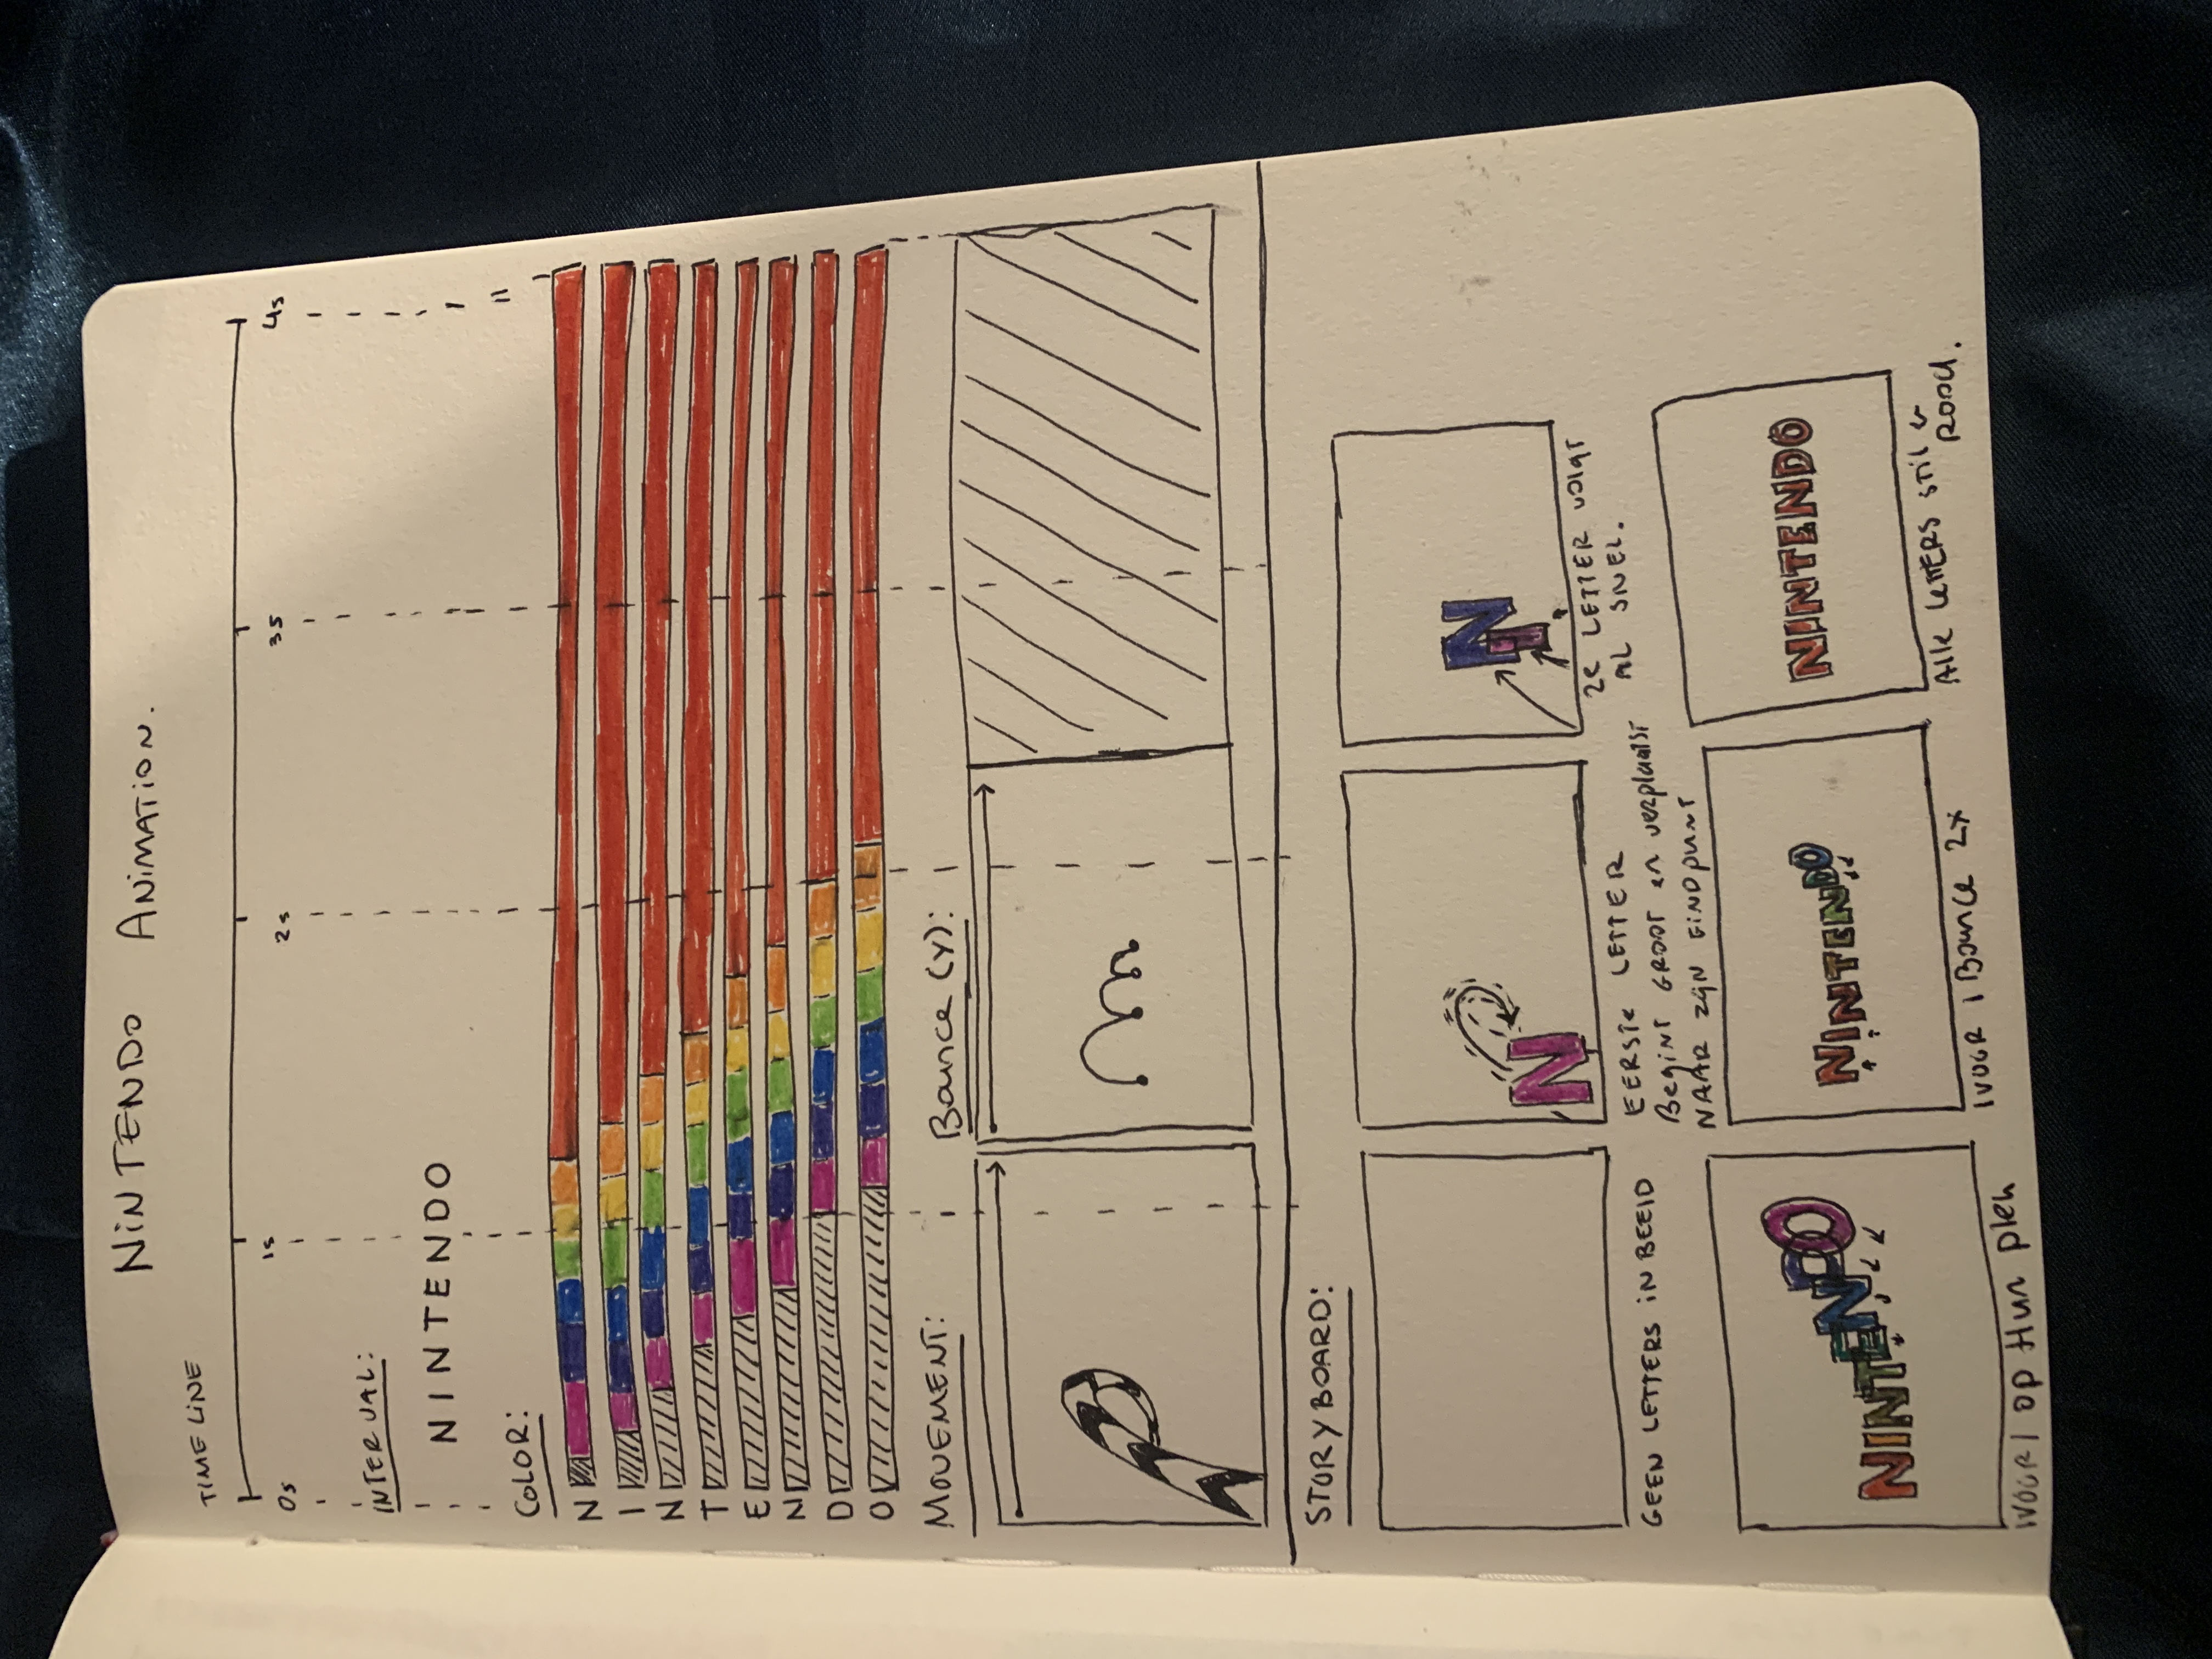 NINTENDO ANIMATION.
TIMELINE
0s 1s 2s 3s 4s
INTERVAL:
NINTENDO
COLOR:
N
I
N
T
E
N
D
O
MOVEMENT: Bounce (Y):
STORYBOARD:
N
N
I
GEEN LETTERS IN BEELD
EERSTE LETTER
Begint GROOT en verplaatst
NAAR zijn EINDpunt
2e LETTER volgt
AL SNEL.
NINTENDO
NINTENDO
NINTENDO
1 VOOR 1 op Hun plek
1 VOOR 1 Bounce 2x
Alle LETTERS stil en
ROOD.